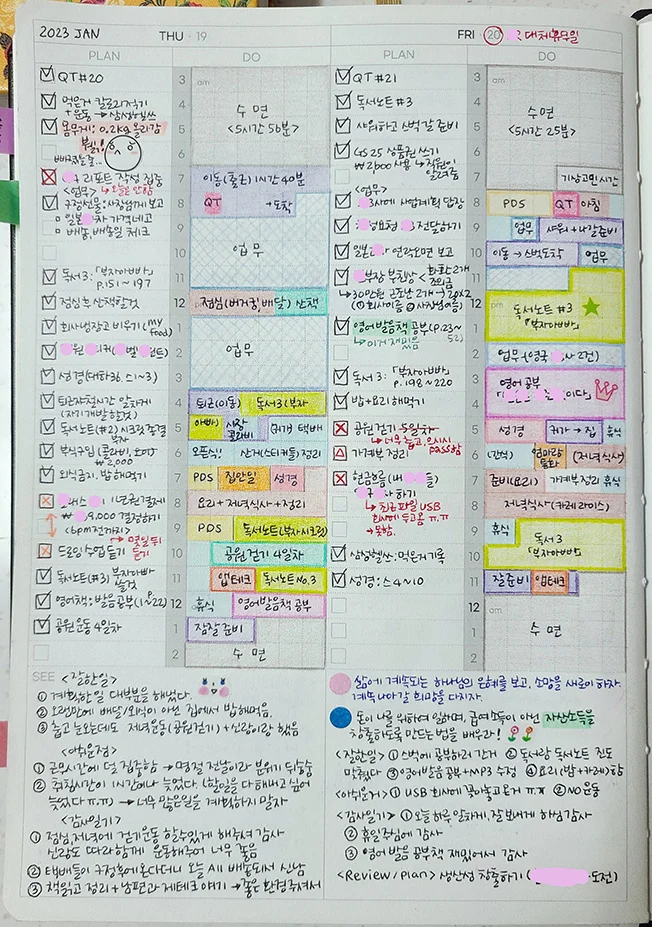 2023 JAN
THU · 19
PLAN
DO
QT#20
먹은거 칼로리적기
+운동 → 삼성헬쓰
몸무게: 0.2kg 올라감
뷁!
리포트 작성 집중
<업무> → 오늘은 안함
구정선물: 사장님께 보고
일본 차 가격네고
배송, 배송일 체크
독서3: 「부자아빠」
p.151~197
점심 후 산책할것
회사냉장고 비우기 (my food)
성경 (대하36, 스1~3)
퇴근자전시간 알차게
(자기개발할것)
독서노트(#2) 시크릿 종결
부식구입 (콜라비, 오이)
₩2,000
외식금지. 밥 해먹기
1년권 결제
₩ 9,000 결제하기
(6pm전까지)
→ 명일 튀
드로잉 수업 듣기
독서노트(#3) 부자아빠
영어책: 발음공부(1~p.22)
공원운동 4일차
3
am
4
5
6
7
8
9
10
11
12
pm
1
2
3
4
5
6
7
8
9
10
11
12
am
1
2
수면
<5시간 56분>
이동(출근) 1시간 40분
QT
+도착
업무
점심(버거킹, 배달) 산책
업무
퇴근(이동)
독서3(부자
아빠)
시장
콜라비
(귀가) 택배
오픈식!! 산거(스티커들) 정리
PDS
집안일
성경
요리+저녁식사+정리
PDS
독서노트(부자시크릿)
공원걷기 4일차
앱테크
독서노트No.3
휴식
영어발음책 공부
잠잘준비
수면
SEE <잘한일>
① 계획한일 대부분을 해냈다.
② 오랜만에 배달/외식이 아닌 집에서 밥해먹음.
③ 춥고 눈오는데도 저녁운동(공원걷기)+신랑이랑 했음
<아쉬운점>
① 근무시간에 덜 집중함 → 명절 전날이라 분위기 뒤숭숭
② 취침시간이 1시간이나 늦었다. (할일을 다 해내고 싶어
늦었다ㅠㅠ) → 너무 많은일을 계획하지 말자
<감사일기>
① 점심, 저녁에 걷기운동 할수있게 해주셔 감사
신랑도 따라 함께 운동해주어 너무 좋음
② 택배들이 구정후에온다더니 오늘 All 배송되서 신남
③ 책읽고 정리+남편과 제테크 얘기 → 좋은 환경주셔서
FRI · 20 대체휴무일
PLAN
DO
QT#21
독서노트#3
샤워하고 스벅갈 준비
GS25 상품권 쓰기
₩2,000 사용 → 직원이
알려줌
<업무>
사에 사업계획 답장
요청 3 전달하기
일본 연락오면 보고
부장 부친상 < 화환2개
조의금
→ 30만원 근조화 2개 → 20x2
(①회사이름 ②사장님이름)
영어발음책 공부(p.23~52)
→ 이거 재미씀
독서3: 「부자아빠」
p.198~220
밥+요리 해먹기
공원걷기 5일차
→ 너무 춥고, 으시시
pass함
가계부 정리
현금흐름
하기
→ 최근파일 USB
회사에 두고옴 ㅠ.ㅠ
→ 못함.
삼성헬쓰: 먹은거기록
성경: 스4~10
3
am
4
5
6
7
8
9
10
11
12
pm
1
2
3
4
5
6
7
8
9
10
11
12
am
1
2
수면
<5시간 25분>
기상고민시간
PDS
QT
아침
업무
샤워+나갈준비
이동→스벅도착
업무
독서노트 #3
「부자아빠」
업무(영국 사 2건)
영어 공부
이다.」
성경
귀가→집
휴식
(간식)
엄마랑
통화
(저녁식사)
준비(요리)
가계부정리 휴식
저녁식사(카레라이스)
휴식
독서3
「부자아빠」
잘준비
앱테크
수면
삶에 계속되는 하나님의 은혜를 보고, 소망을 새로이 하자.
계속 나아갈 희망을 다지자.
돈이 나를 위하여 일하며, 급여소득이 아닌 자산소득을
창출하도록 만드는 법을 배우라!
<잘한일> ① 스벅에 공부하러 간거 ② 독서랑 독서노트 진도
맞췄다 ③ 영어발음공부+MP3 수정 ④ 요리(밥+카레)함
<아쉬운거> ① USB 회사에 꽂아놓고온거 ㅠ.ㅠ ② NO운동
<감사일기> ① 오늘하루 알차게, 잘 보내게 하심 감사
② 휴일주심에 감사
③ 영어 발음 공부책 재밌어서 감사
<Review/Plan> 생산성 창출하기 ( 도전)